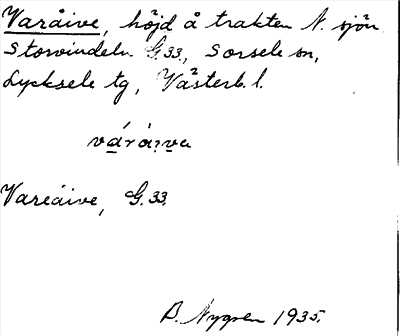 Varåive, höjd å trakten N. sjön
Storvindeln G.33., Sorsele sn,
Lycksele tg, Västerb. l.
Vareåive, G.33.
B. Nygren 1935.